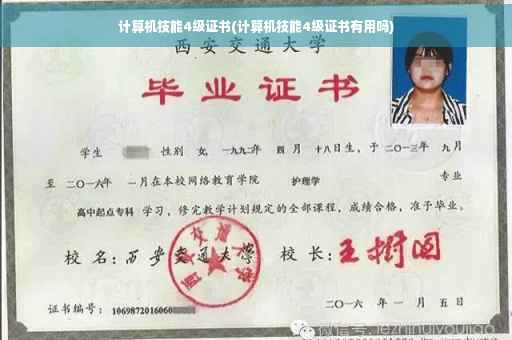 计算机技能4级证书(计算机技能4级证书有用吗)
西安交通大学
毕业证书
学生 性别 女, 一九九二年 四月 十八日生, 于二〇一三年 九月
至 二〇一六年 一月在本校网络教育学院 护理学 专业
高中起点专科 学习, 修完教学计划规定的全部课程, 成绩合格, 准予毕业。
校名: 西安交通大学 校长: 王树国
西安交通大学
证书编号: 1069872016060
二〇一六年 一月 五日
微信号: lezhihuiyoujiao